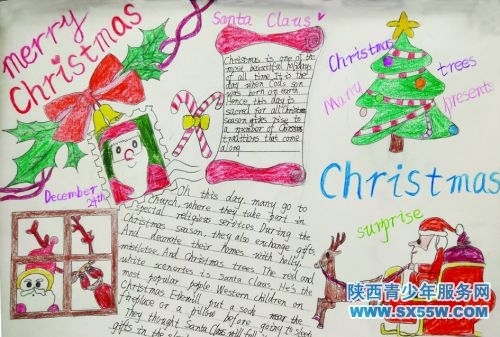 merry
Christmas
Santa Claus
Christmas is one of the
most beautiful
of all time It is the
day when Gods son
was born on earth
Hence, this day is
sacred for all Christmas
season gives rise to
a number of Christmas
traditions that come
along
Christmas trees
Many presents
Christmas
surprise
December
24th
On this day many go to
church, where they take part in
special religious services During the
Christmas season, they also exchange gifts
And decorate their homes with holly,
mistletoe And Christmas trees. The red and
white is Santa Claus. He's the
most popular Western children on
Christmas put a sock near the
fireplace or a pillow before going to sleep
They thought Santa Claus will fall
gifts in the
陕西青少年服务网
www.sx55w.com